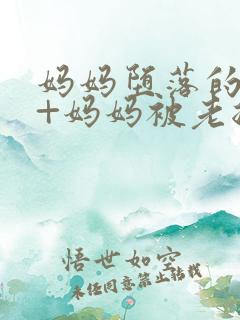 妈妈堕落的
+妈妈被老
悟世如空
未经同意禁止转载